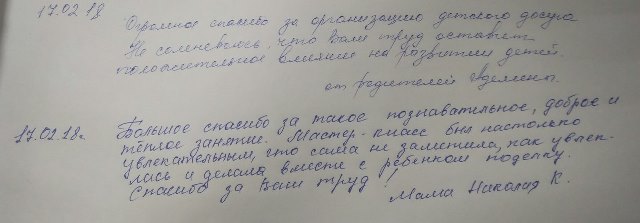 17.02.18
Огромное спасибо за организацию детского досуга
Не сомневаюсь, что Ваш труд оставит
положительное влияние на развитии детей.
от родителей
17.02.18г. Большое спасибо за такое познавательное, доброе и
тёплое занятие. Мастер-класс был настолько
увлекательным, что сама не заметила, как увлек-
лась и делала вместе с ребенком поделку.
Спасибо за Ваш труд!
Мама Николая К.